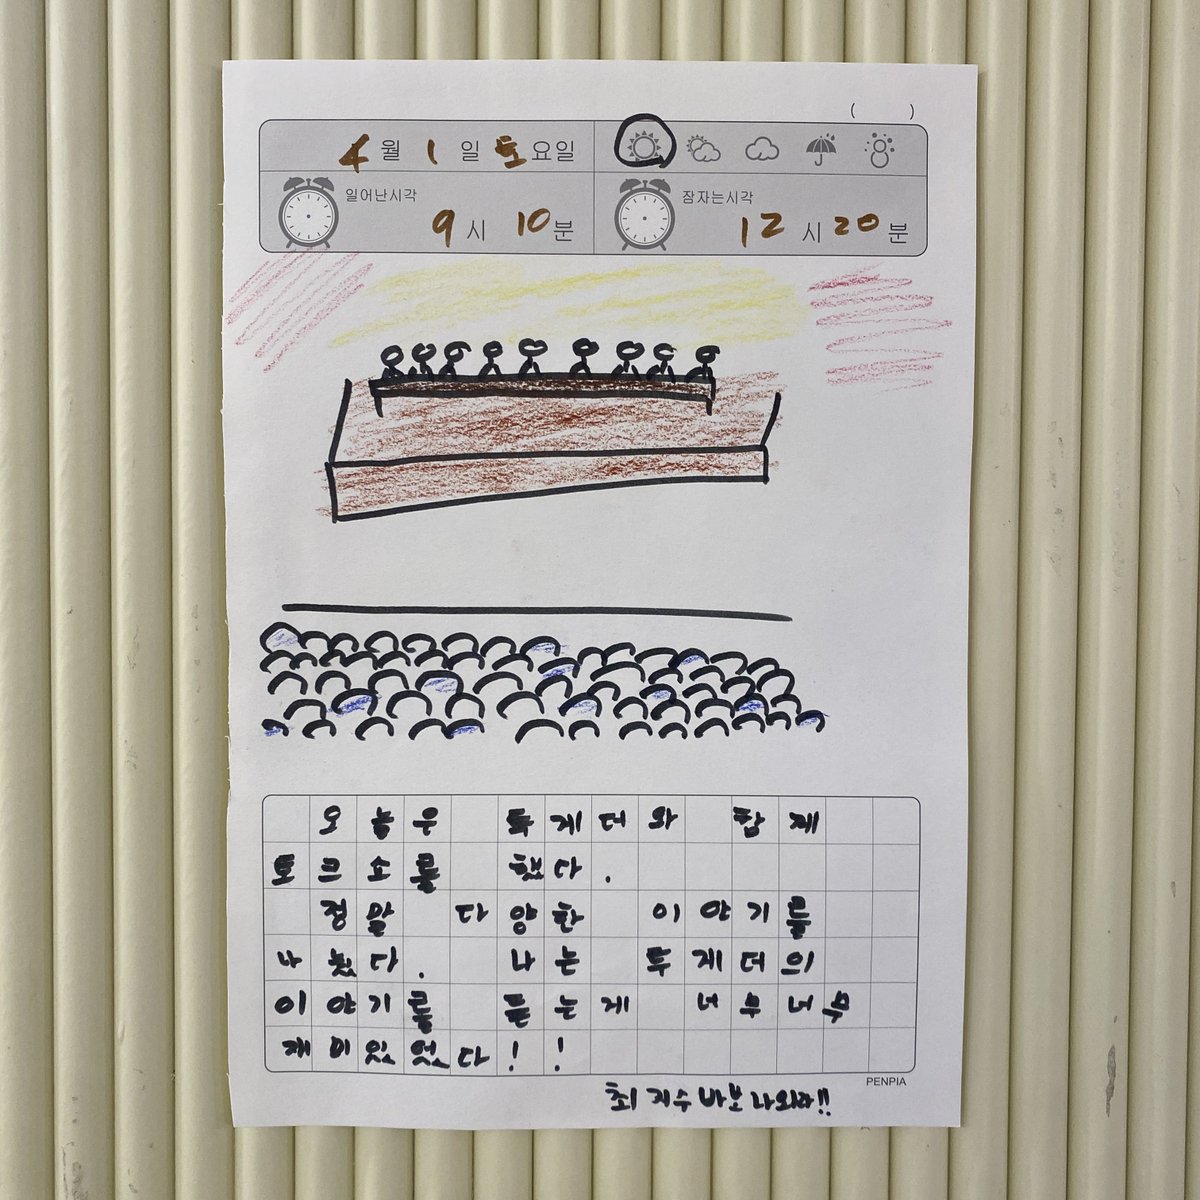 (      )
4월 1일 토요일
일어난시각
9시 10분
잠자는시각
12시 20분
오늘은 투게더와 함께
토크쇼를 했다.
정말 다양한 이야기를
나눴다. 나는 투게더의
이야기를 듣는게 너무너무
재미있었다!!
PENPIA
최지수 바보 나와라!!